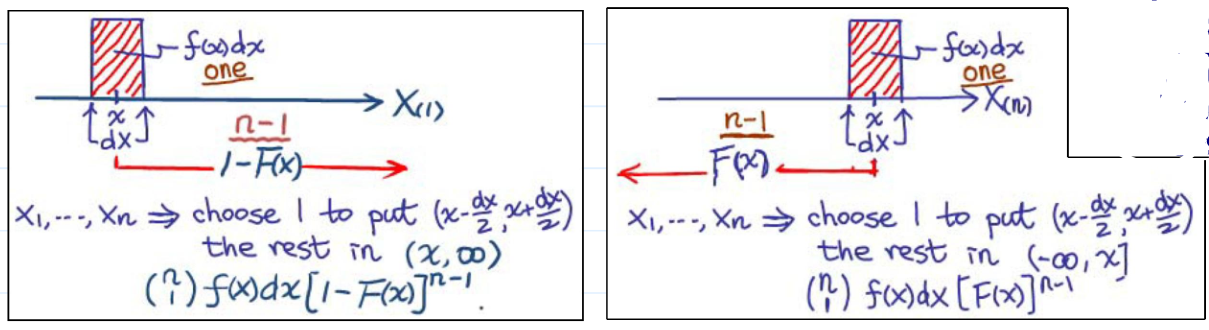 f(x)dx
one
X(1)
x
dx
n-1
1-F(x)
X1,---,Xn ⇒ choose 1 to put (x-dx/2, x+dx/2)
the rest in (x,∞)
(n 1) f(x)dx[1-F(x)]^{n-1}.
f(x)dx
one
X(n)
x
dx
n-1
F(x)
X1,---,Xn ⇒ choose 1 to put (x-dx/2, x+dx/2)
the rest in (-∞,x]
(n 1) f(x)dx [F(x)]^{n-1}